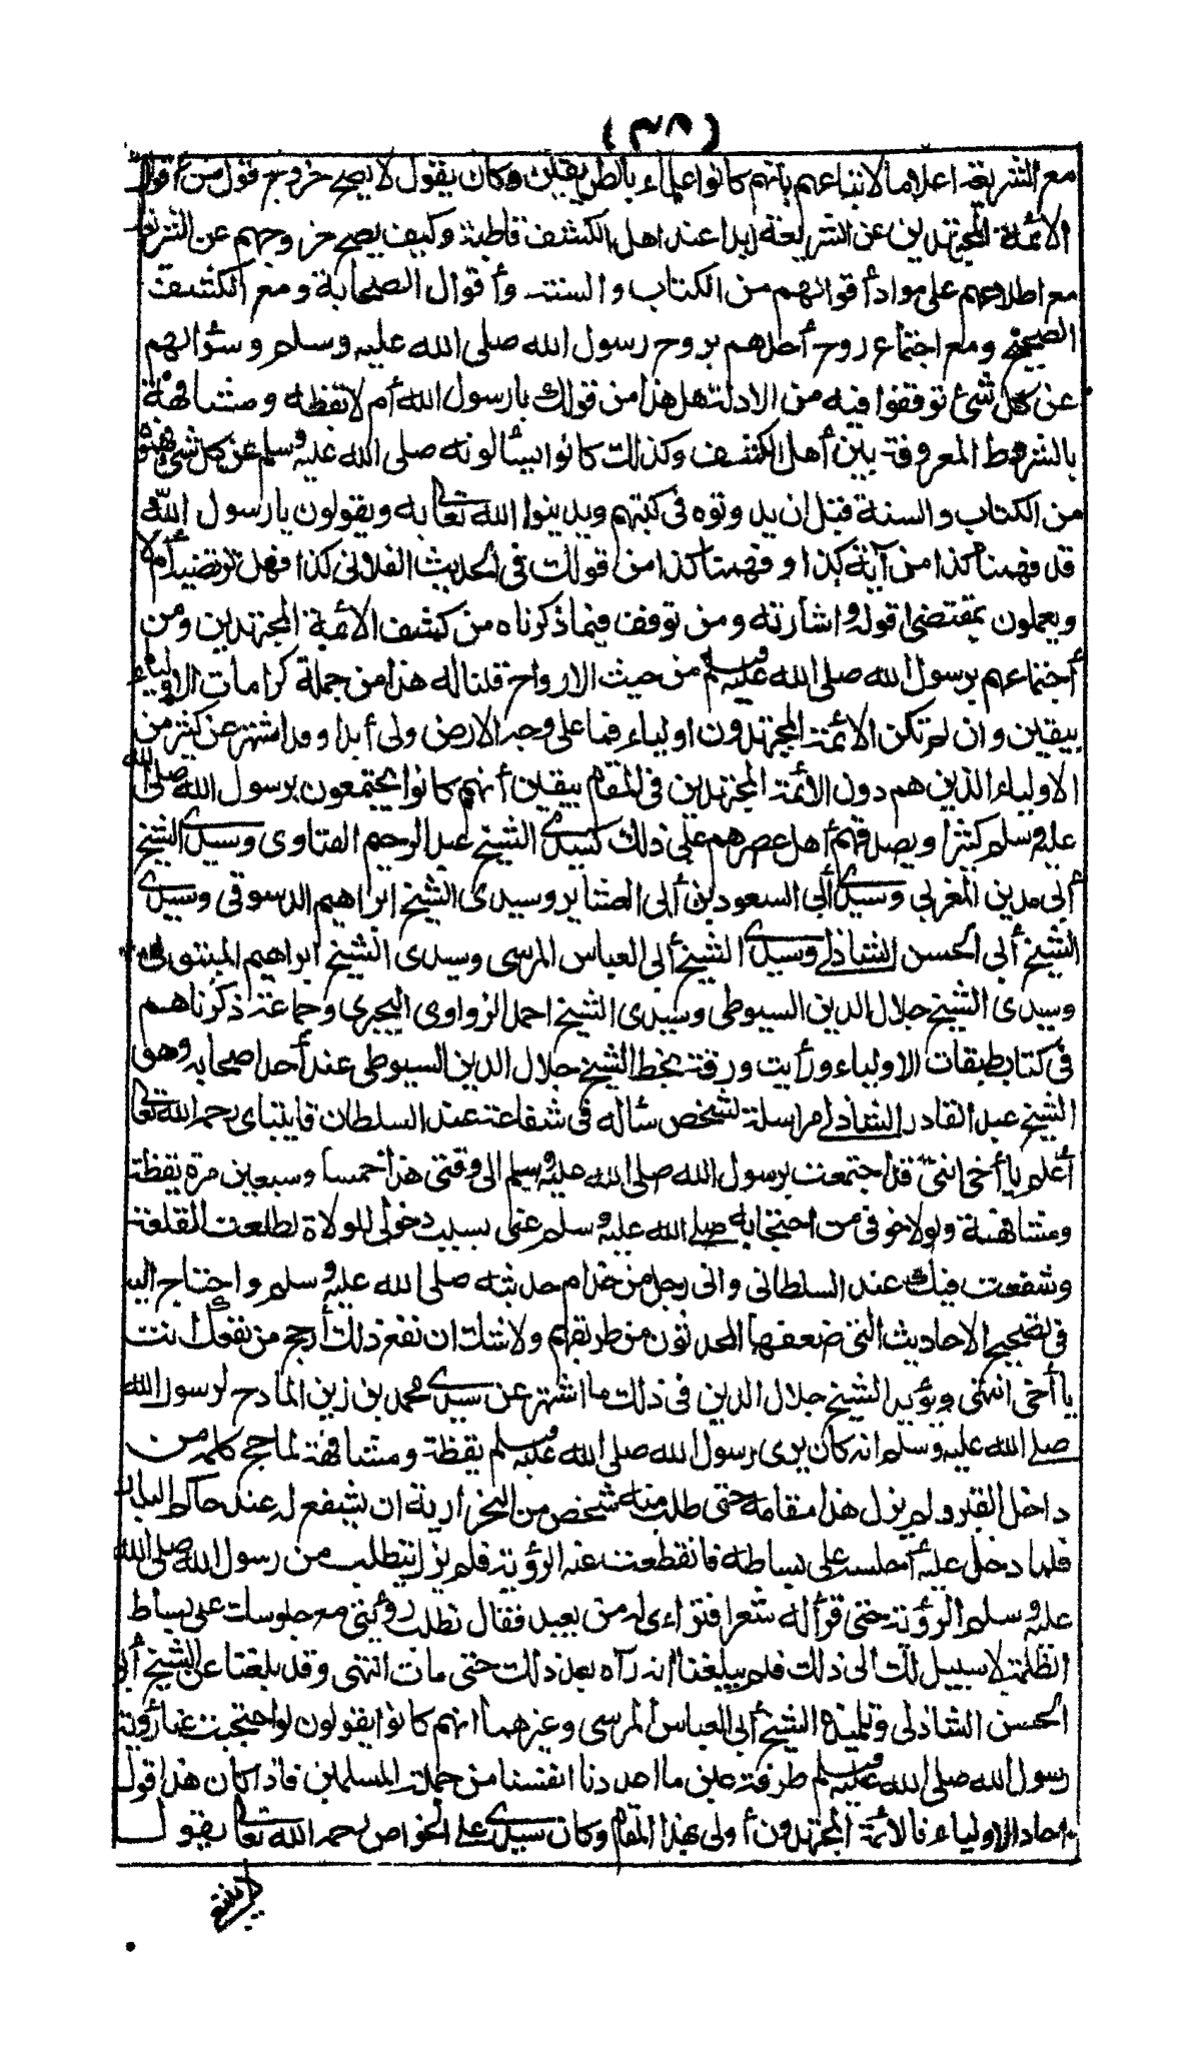 (٣٨)
مع الشريعة اعلاما لاتباعهم بانهم كانوا علماء بالطريقين وكان يقول لا يصح خروج قول من أقوال
الائمة المجتهدين عن الشريعة ابدا عند اهل الكشف قاطبة وكيف يصح خروجهم عن الشريعة
مع اطلاعهم على مواد أقوالهم من الكتاب والسنة وأقوال الصحابة ومع الكشف
الصحيح ومع اجتماع روح أحدهم بروح رسول الله صلى الله عليه وسلم وسؤالهم
عن كل شئ توقفوا فيه من الادلة هل هذا من قولك يا رسول الله أم لا يقظة ومشافهة
بالشروط المعروفة بين أهل الكشف وكذلك كانوا يسألونه صلى الله عليه وسلم عن كل شئ فهموه
من الكتاب والسنة قبل ان يدونوه في كتبهم ويدينوا الله تعالى به ويقولون يا رسول الله
قد فهمنا كذا من آية كذا وفهمنا كذا من قولك في الحديث الفلاني كذا فهل ترتضيه أم لا
ويعملون بمقتضى قوله واشارته ومن توقف فيما ذكرناه من كشف الائمة المجتهدين ومن
أجتماعهم برسول الله صلى الله عليه وسلم من حيث الارواح قلنا له هذا من جملة كرامات الاولياء
بيقين وان لم تكن الائمة المجتهدون اولياء فما على وجه الارض ولى أبدا وقد اشتهر عن كثير من
الاولياء الذين هم دون الائمة المجتهدين في المقام بيقين أنهم كانوا يجتمعون برسول الله صلى الله
عليه وسلم كثيرا ويصدقهم أهل عصرهم على ذلك كسيدى الشيخ عبد الرحيم القناوى وسيدى الشيخ
أبى مدين المغربى وسيدى أبى السعود بن أبى العشاير وسيدى الشيخ ابراهيم الدسوقى وسيدى
الشيخ أبى الحسن الشاذلى وسيدى الشيخ أبى العباس المرسى وسيدى الشيخ ابراهيم المتبولى
وسيدى الشيخ جلال الدين السيوطى وسيدى الشيخ احمد الزواوى البحيرى وجماعة ذكرناهم
في كتاب طبقات الاولياء ورأيت ورقة بخط الشيخ جلال الدين السيوطى عند أحد اصحابه وهو
الشيخ عبد القادر الشاذلى مراسلة لشخص سأله في شفاعة عند السلطان قايتباى رحمه الله تعالى
أعلم يا أخى اننى قد اجتمعت برسول الله صلى الله عليه وسلم الى وقتى هذا خمسا وسبعين مرة يقظة
ومشافهة ولولا خوفى من احتجابه صلى الله عليه وسلم عنى بسبب دخولى للولاة لطلعت القلعة
وشفعت فيك عند السلطان وانى رجل من خدام حديثه صلى الله عليه وسلم واحتاج اليه
في تصحيح الاحاديث التى ضعفها المحدثون من طريقهم ولا شك ان نفع ذلك أرجح من نفعك انت
يا أخى انتهى ويؤيد الشيخ جلال الدين في ذلك ما اشتهر عن سيدى محمد بن زين المادح لرسول الله
صلى الله عليه وسلم انه كان يرى رسول الله صلى الله عليه وسلم يقظة ومشافهة لما حج كلمه من
داخل القبر ولم يزل هذا مقامه حتى طلب منه شخص من النحرارية ان يشفع له عند حاكم البلد
فلما دخل عليه أجلسه على بساطه فانقطعت عنه الرؤية فلم يزل يتطلب من رسول الله صلى الله
عليه وسلم الرؤية حتى قرأ له شعرا فتراءى له من بعيد فقال تطلب رؤيتى مع جلوسك على بساط
الظلمة لا سبيل لك الى ذلك فلم يبلغنا انه رآه بعد ذلك حتى مات انتهى وقد بلغنا عن الشيخ أبى
الحسن الشاذلى وتلميذه الشيخ أبى العباس المرسى وغيرهما انهم كانوا يقولون لو احتجبت عنا رؤية
رسول الله صلى الله عليه وسلم طرفة عين ما اعددنا انفسنا من جملة المسلمين فاذا كان هذا قول
احاد الاولياء فالائمة المجتهدون أولى بهذا المقام وكان سيدى على الخواص رحمه الله تعالى يقول